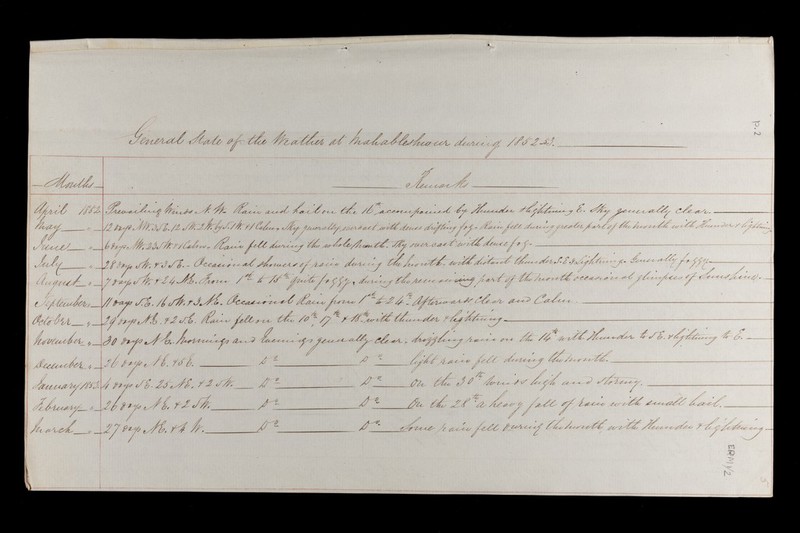 General State of the Weather at Mahableshwur during 1852-3.
p.2
Months Remarks
April 1852 Prevailing Winds. N.W. Rain and hail on the 16th accompanied by thunder & lightning E. Sky generally clear.
May " 12 days W. Sky generally overcast with dense drifting fog. Rain fell during greater part of the month with Thunder & lightning
June " 6 days W. & Calm. Rain fell during the whole month. Sky over cast with dense fog.
July " 28 days W. & 3 S.E. Occasional showers of rain during the month with distant thunder & lightning. Generally foggy.
August " 7 days W. & 24 N.E. From 1st to 15th quite foggy, during the remaining part of the month occasional glimpses of Sunshine.
September " 11 days S.E. 16 W. & 3 N.E. Occasional Rain from 1st to 24th. Afterwards Clear and Calm.
October " 29 days N.E. & 2 S.E. Rain fell on the 10th, 17th & 18th with thunder & lightning
November " 30 days N.E. Mornings and Evenings generally clear, drizzling rain on the 14th with Thunder to S.E. & lightning to E.
December " 26 days N.E. & 5 E. Do Do light rain fell during the month.
January 1853 4 days S.E. 25 N.E. & 2 W. Do Do On the 30th winds high and stormy.
February " 26 days N.E. & 2 W. Do Do On the 28th a heavy fall of rain with small hail.
March " 27 days N.E. & 4 W. Do Do Some rain fell during the month with thunder & lightning
ERM/2